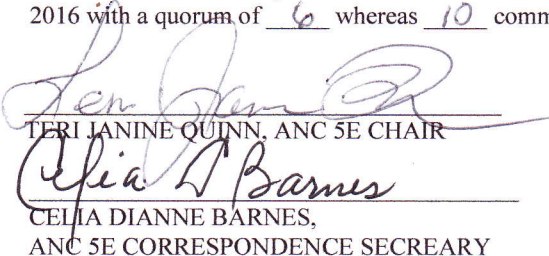 2016 with a quorum of 6 whereas 10 comm
Teri Janine Q
TERI JANINE QUINN, ANC 5E CHAIR
Celia D Barnes
CELIA DIANNE BARNES,
ANC 5E CORRESPONDENCE SECREARY